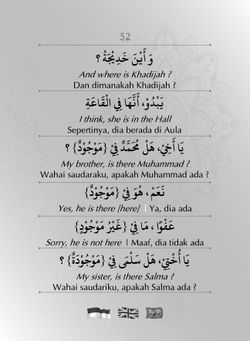 52
وَ أَيْنَ خَدِيْجَةُ ؟
And where is Khadijah ?
Dan dimanakah Khadijah ?
يَبْدُوْ، أَنَّهَا فِي الْقَاعَةِ
I think, she is in the Hall
Sepertinya, dia berada di Aula
يَا أَخِيْ، هَلْ مُحَمَّدٌ فِيْ {مَوْجُوْدٌ} ؟
My brother, is there Muhammad ?
Wahai saudaraku, apakah Muhammad ada ?
نَعَمْ، هُوَ فِيْ {مَوْجُوْدٌ}
Yes, he is there [here] | Ya, dia ada
عَفْوًا، مَا فِيْ {غَيْرُ مَوْجُوْدٍ}
Sorry, he is not here | Maaf, dia tidak ada
يَا أُخْتِيْ، هَلْ سَلْمَى فِيْ {مَوْجُوْدَةٌ} ؟
My sister, is there Salma ?
Wahai saudariku, apakah Salma ada ?